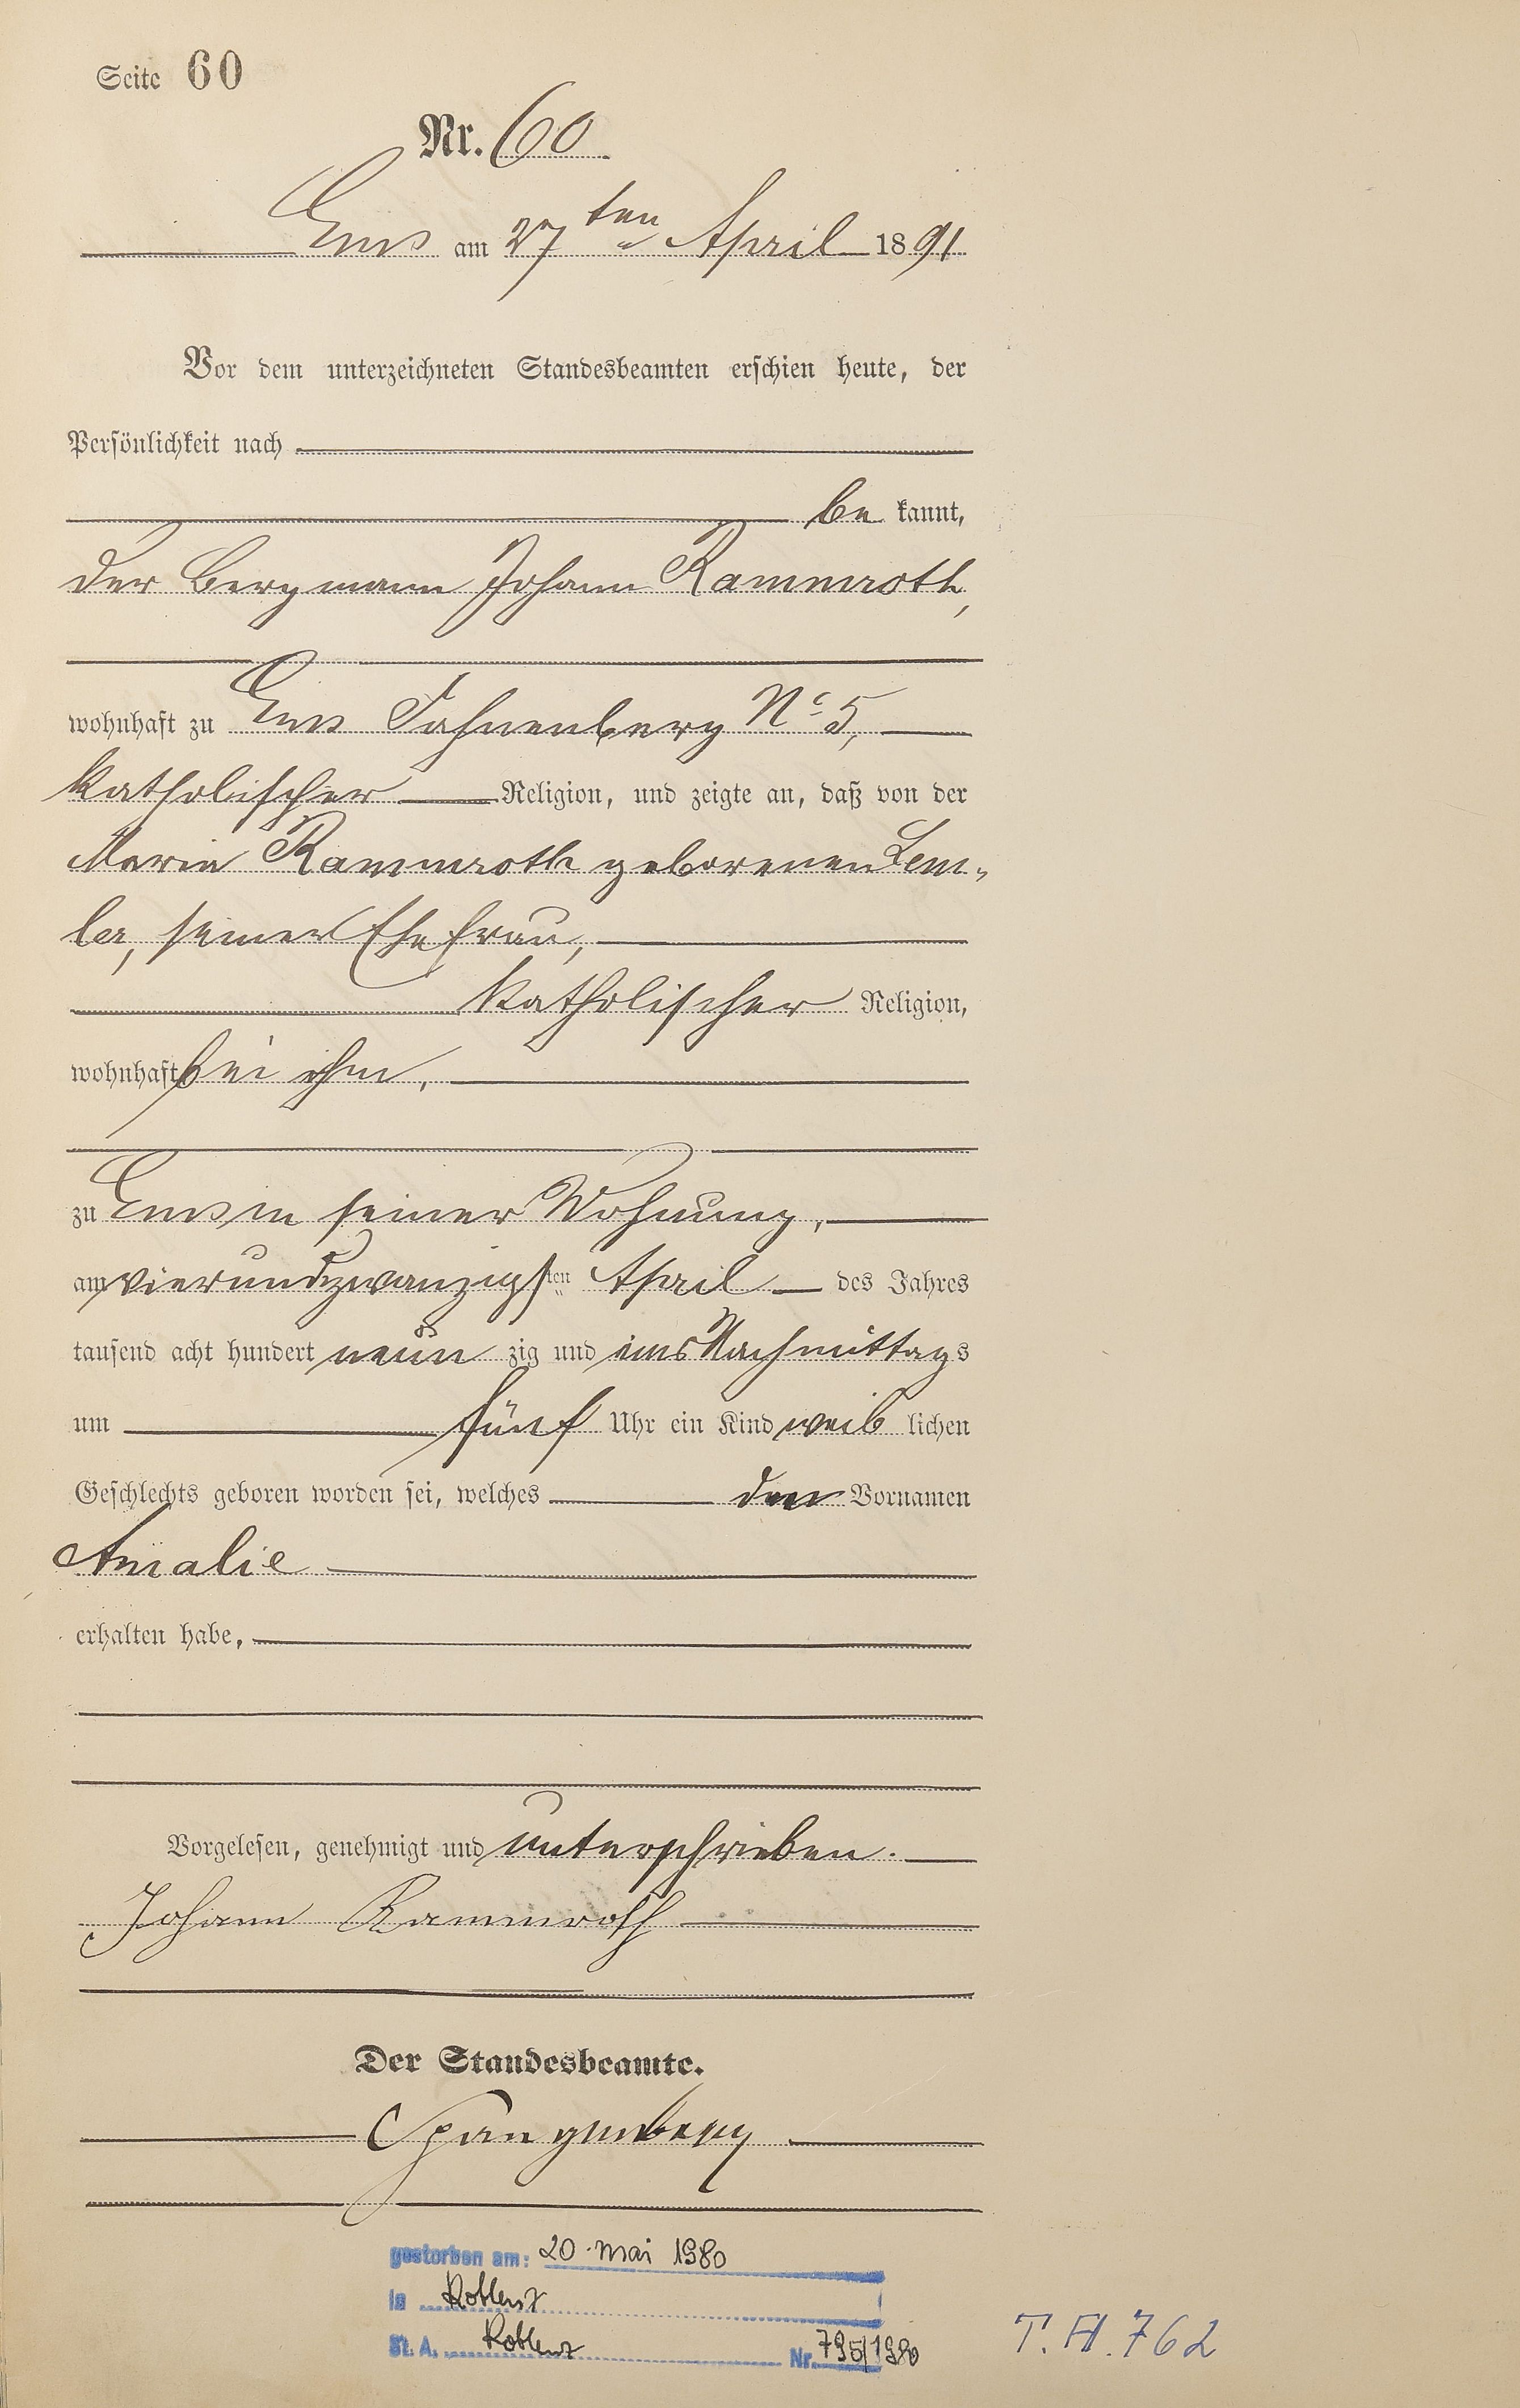 Seite 60
Nr. 60
Ems am 27ten April 1891
Vor dem unterzeichneten Standesbeamten erschien heute, der
Persönlichkeit nach
be kannt,
der Bergmann Johann Rammroth,
wohnhaft zu Ems Fahnenberg No 5,
katholischer Religion, und zeigte an, daß von der
Maria Rammroth geborenen Lem-
ler, seiner Ehefrau,
katholischer Religion,
wohnhaft bei ihm,
zu Ems in seiner Wohnung,
am vierundzwanzigsten April des Jahres
tausend acht hundert neun zig und eins Nachmittags
um fünf Uhr ein Kind weib lichen
Geschlechts geboren worden sei, welches den Vornamen
Amalie
erhalten habe,
Vorgelesen, genehmigt und unterschrieben.
Johann Rammroth
Der Standesbeamte.
Spangenberg
gestorben am: 20. Mai 1980
in Koblenz
St. A. Koblenz Nr. 795/1980
T. A. 762